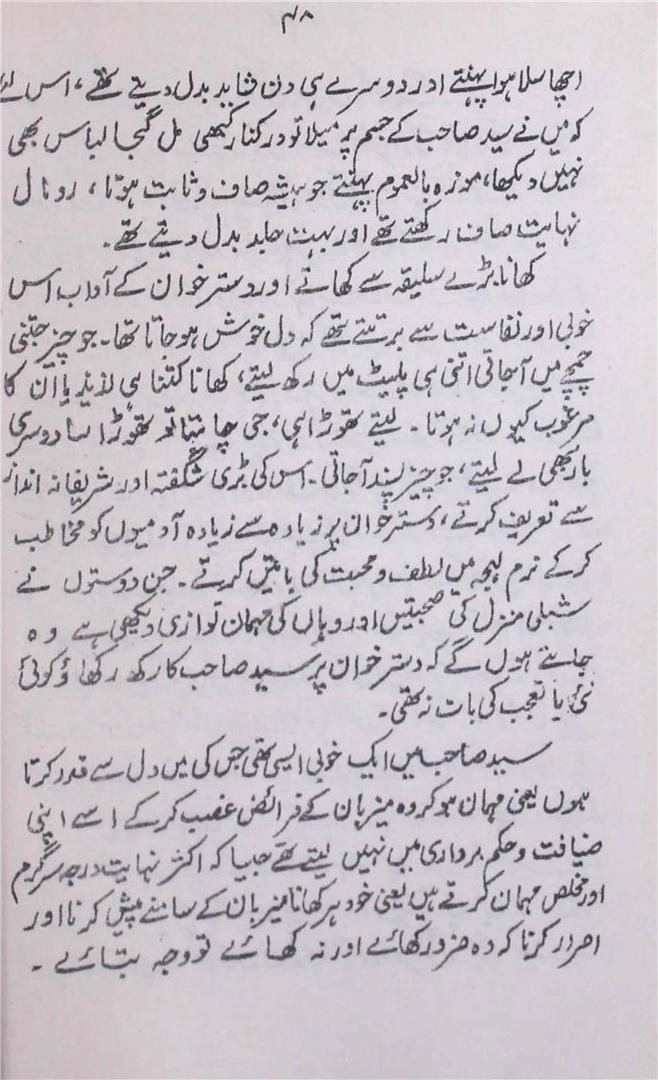 ۴۸
اچھا سلا ہوا پہنتے اور دوسرے ہی دن شاید بدل دیتے تھے، اس لئے
کہ میں نے سید صاحب کے جسم پر میلا تو درکنار کبھی مل گجا لباس بھی
نہیں دیکھا، موزہ بالعموم پہنتے جو ہمیشہ صاف و ثابت ہوتا، رومال
نہایت صاف رکھتے تھے اور بہت جلد بدل دیتے تھے۔
کھانا بڑے سلیقہ سے کھاتے اور دسترخوان کے آداب اس
خوبی اور نفاست سے برتتے تھے کہ دل خوش ہو جاتا تھا۔ جو چیز جتنی
چمچے میں آجاتی اتنی ہی پلیٹ میں رکھ لیتے، کھانا کتنا ہی لذیذ یا ان کا
مرغوب کیوں نہ ہوتا۔ لیتے تھوڑا ہی، جی چاہتا تو تھوڑا سا دوسری
بار بھی لے لیتے، جو چیز پسند آجاتی۔ اس کی بڑی شگفتہ اور شریفانہ انداز
سے تعریف کرتے، دسترخوان پر زیادہ سے زیادہ آدمیوں کو مخاطب
کرکے نرم لہجہ میں لطف و محبت کی باتیں کرتے۔ جن دوستوں نے
شبلی منزل کی صحبتیں اور وہاں کی مہمان نوازی دیکھی ہے وہ
جانتے ہوں گے کہ دسترخوان پر سید صاحب کا رکھ رکھاؤ کوئی
نئی یا تعجب کی بات نہ تھی۔
سید صاحب میں ایک خوبی ایسی تھی جس کی میں دل سے قدر کرتا
ہوں یعنی مہمان ہو کر وہ میزبان کے فرائض غصب کرکے اسے اپنی
ضیافت و حکم برداری میں نہیں لیتے تھے جیسا کہ اکثر نہایت درجہ سرگرم
اور مخلص مہمان کرتے ہیں یعنی خود ہر کھانا میزبان کے سامنے پیش کرنا اور
اصرار کرنا کہ وہ ضرور کھائے اور نہ کھائے تو وجہ بتائے۔